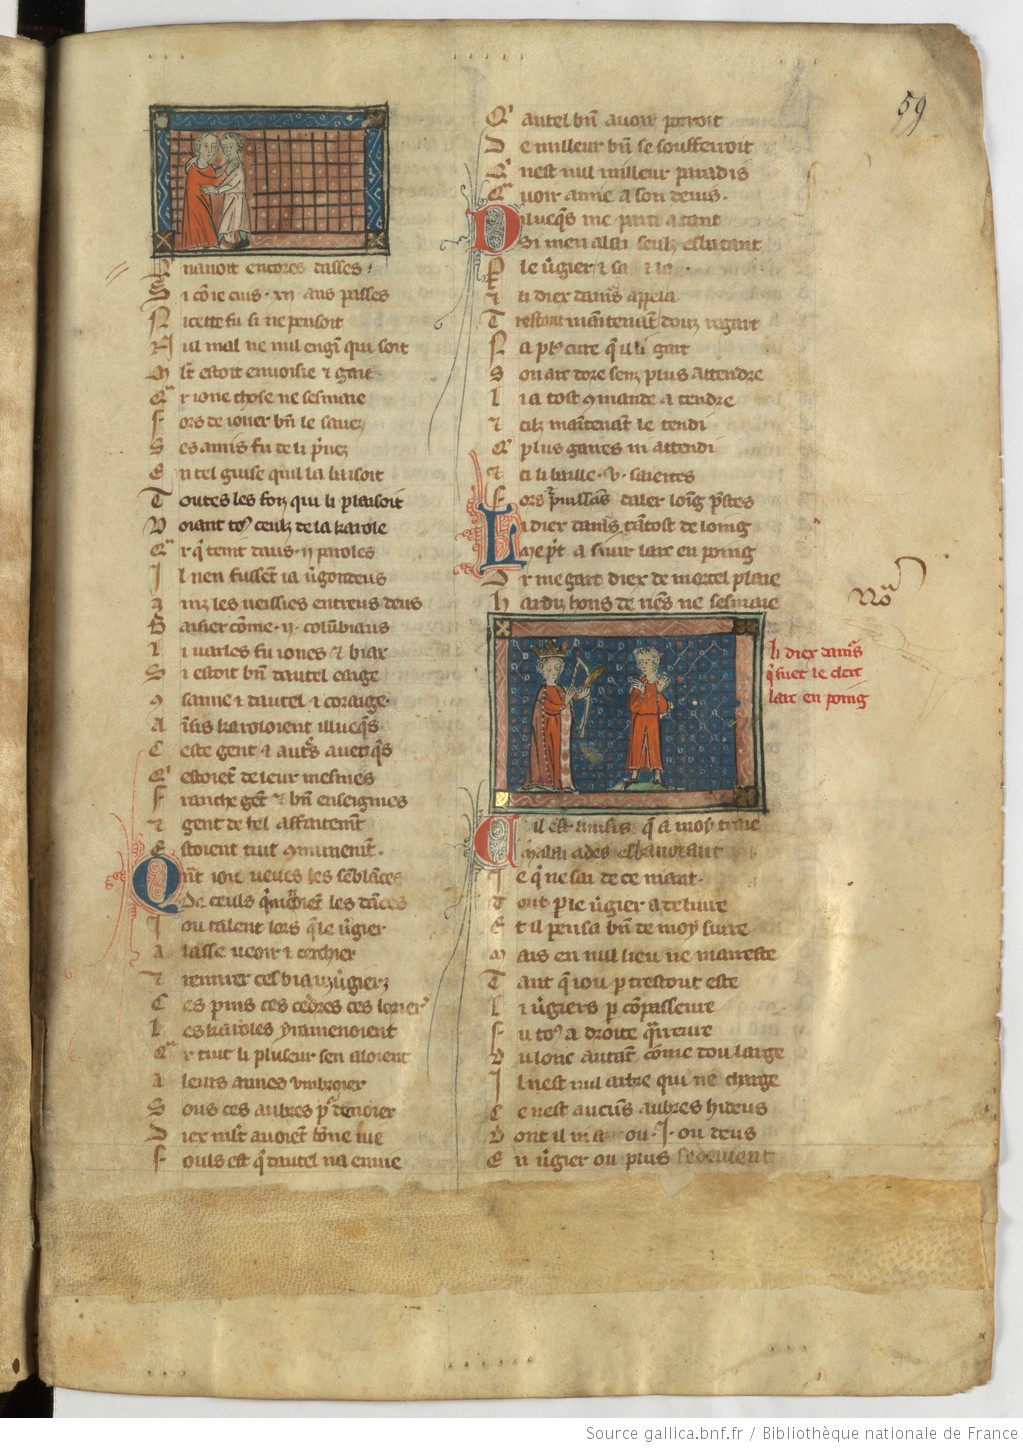 59
navoit encores dasses
S i cōe cius · xii ans passes
N icette fu si ne pensoit
N ul mal ne nul engī qui soit
M lt estoit envoisie ⁊ gaie
Qr ione chose ne sesmaie
F ors de iouer bn̄ le savez
S es amis fu de li p̄vez
E n tel guise quil la baisoit
T outes les foiz qui li plaisoit
V oiant toꝰ ceulz de la karole
Qr q̄ tenit daus · ii paroles
I l nen fussent ia v̄gondeus
A inz les veissies entreus deus
B aisier cōme · ii · columbiaus
L i varles fu iones ⁊ biax
S i estoit bn̄ dautel eage
9 sanie ⁊ dautel ⁊ coraige
A insi karoloient illueq̄s
C este gent ⁊ autˢ avecq̄s
Q' estoiēt de leur mesnies
F ranche gēt ⁊ bn̄ enseignies
⁊ gent de bel affaitemt̄
E stoient tuit 9munemt̄
Qn̄t ioie veues les sēblāces
De ceuls q̄ menoiēt les dāces
I ou talent lors q̄ le v̄gier
A lasse veoir ⁊ cerchier
⁊ remirer ces biauz v̄giers
C es pins ces cedres ces loriers
L es karoles ia menoient
Qr tuit li pluseur sen aloient
A leurs amies umbroier
S ous ces aubres pꝰ denoier
D iex mlt avoiēt bōne vie
F ouls est q̄ dautel na envie
Q' autel bn̄ avoir porroit
D e milleur bn̄ se soufferroit
Q' nest nul milleur paradis
Qͣ voir amie a son devis
D ilueq̄s me parti atant
Si men alai seulz esbatant
P le v̄gier ⁊ sa ⁊ la
⁊ li diex dam̄s appela
T restout maintenāt douz regart
N a plꝰ cure q̄ il li gart
S on arc dore senz plus attendre
L i a tost 9mande a tendre
⁊ cilz maintenāt le tendi
Q' plus gaires ni attendi
⁊ ci li baille · v · saietes
F ors puissās daler loīg prestes
L i diex dam̄s tātost de loing
Me p̄t a sivir larc en poing
O r me gart diex de mortel plaie
H ardiz hons de riēs ne sesmaie
Noͣ
li diex dam̄s
q̄ suet le cleir
larc en poing
C il est q̄ a moy traie
alai ades esbanoiant
I e q̄ ne sai de ce niant
T out p̄ le v̄gier a delivre
E t il pensa bn̄ de moy suire
M ais en nul lieu ne mareste
T ant q̄ iou p trestout este
L i v̄giers p cōpasseure
F u toꝰ a droite q̄rreure
B u lonc autāt cōme dou large
I l nest nul arbre qui ne charge
C e nest aucuns aubres hideus
D ont il ni a ou · I · ou deus
E n v̄gier ou plus
Source gallica.bnf.fr / Bibliothèque nationale de France